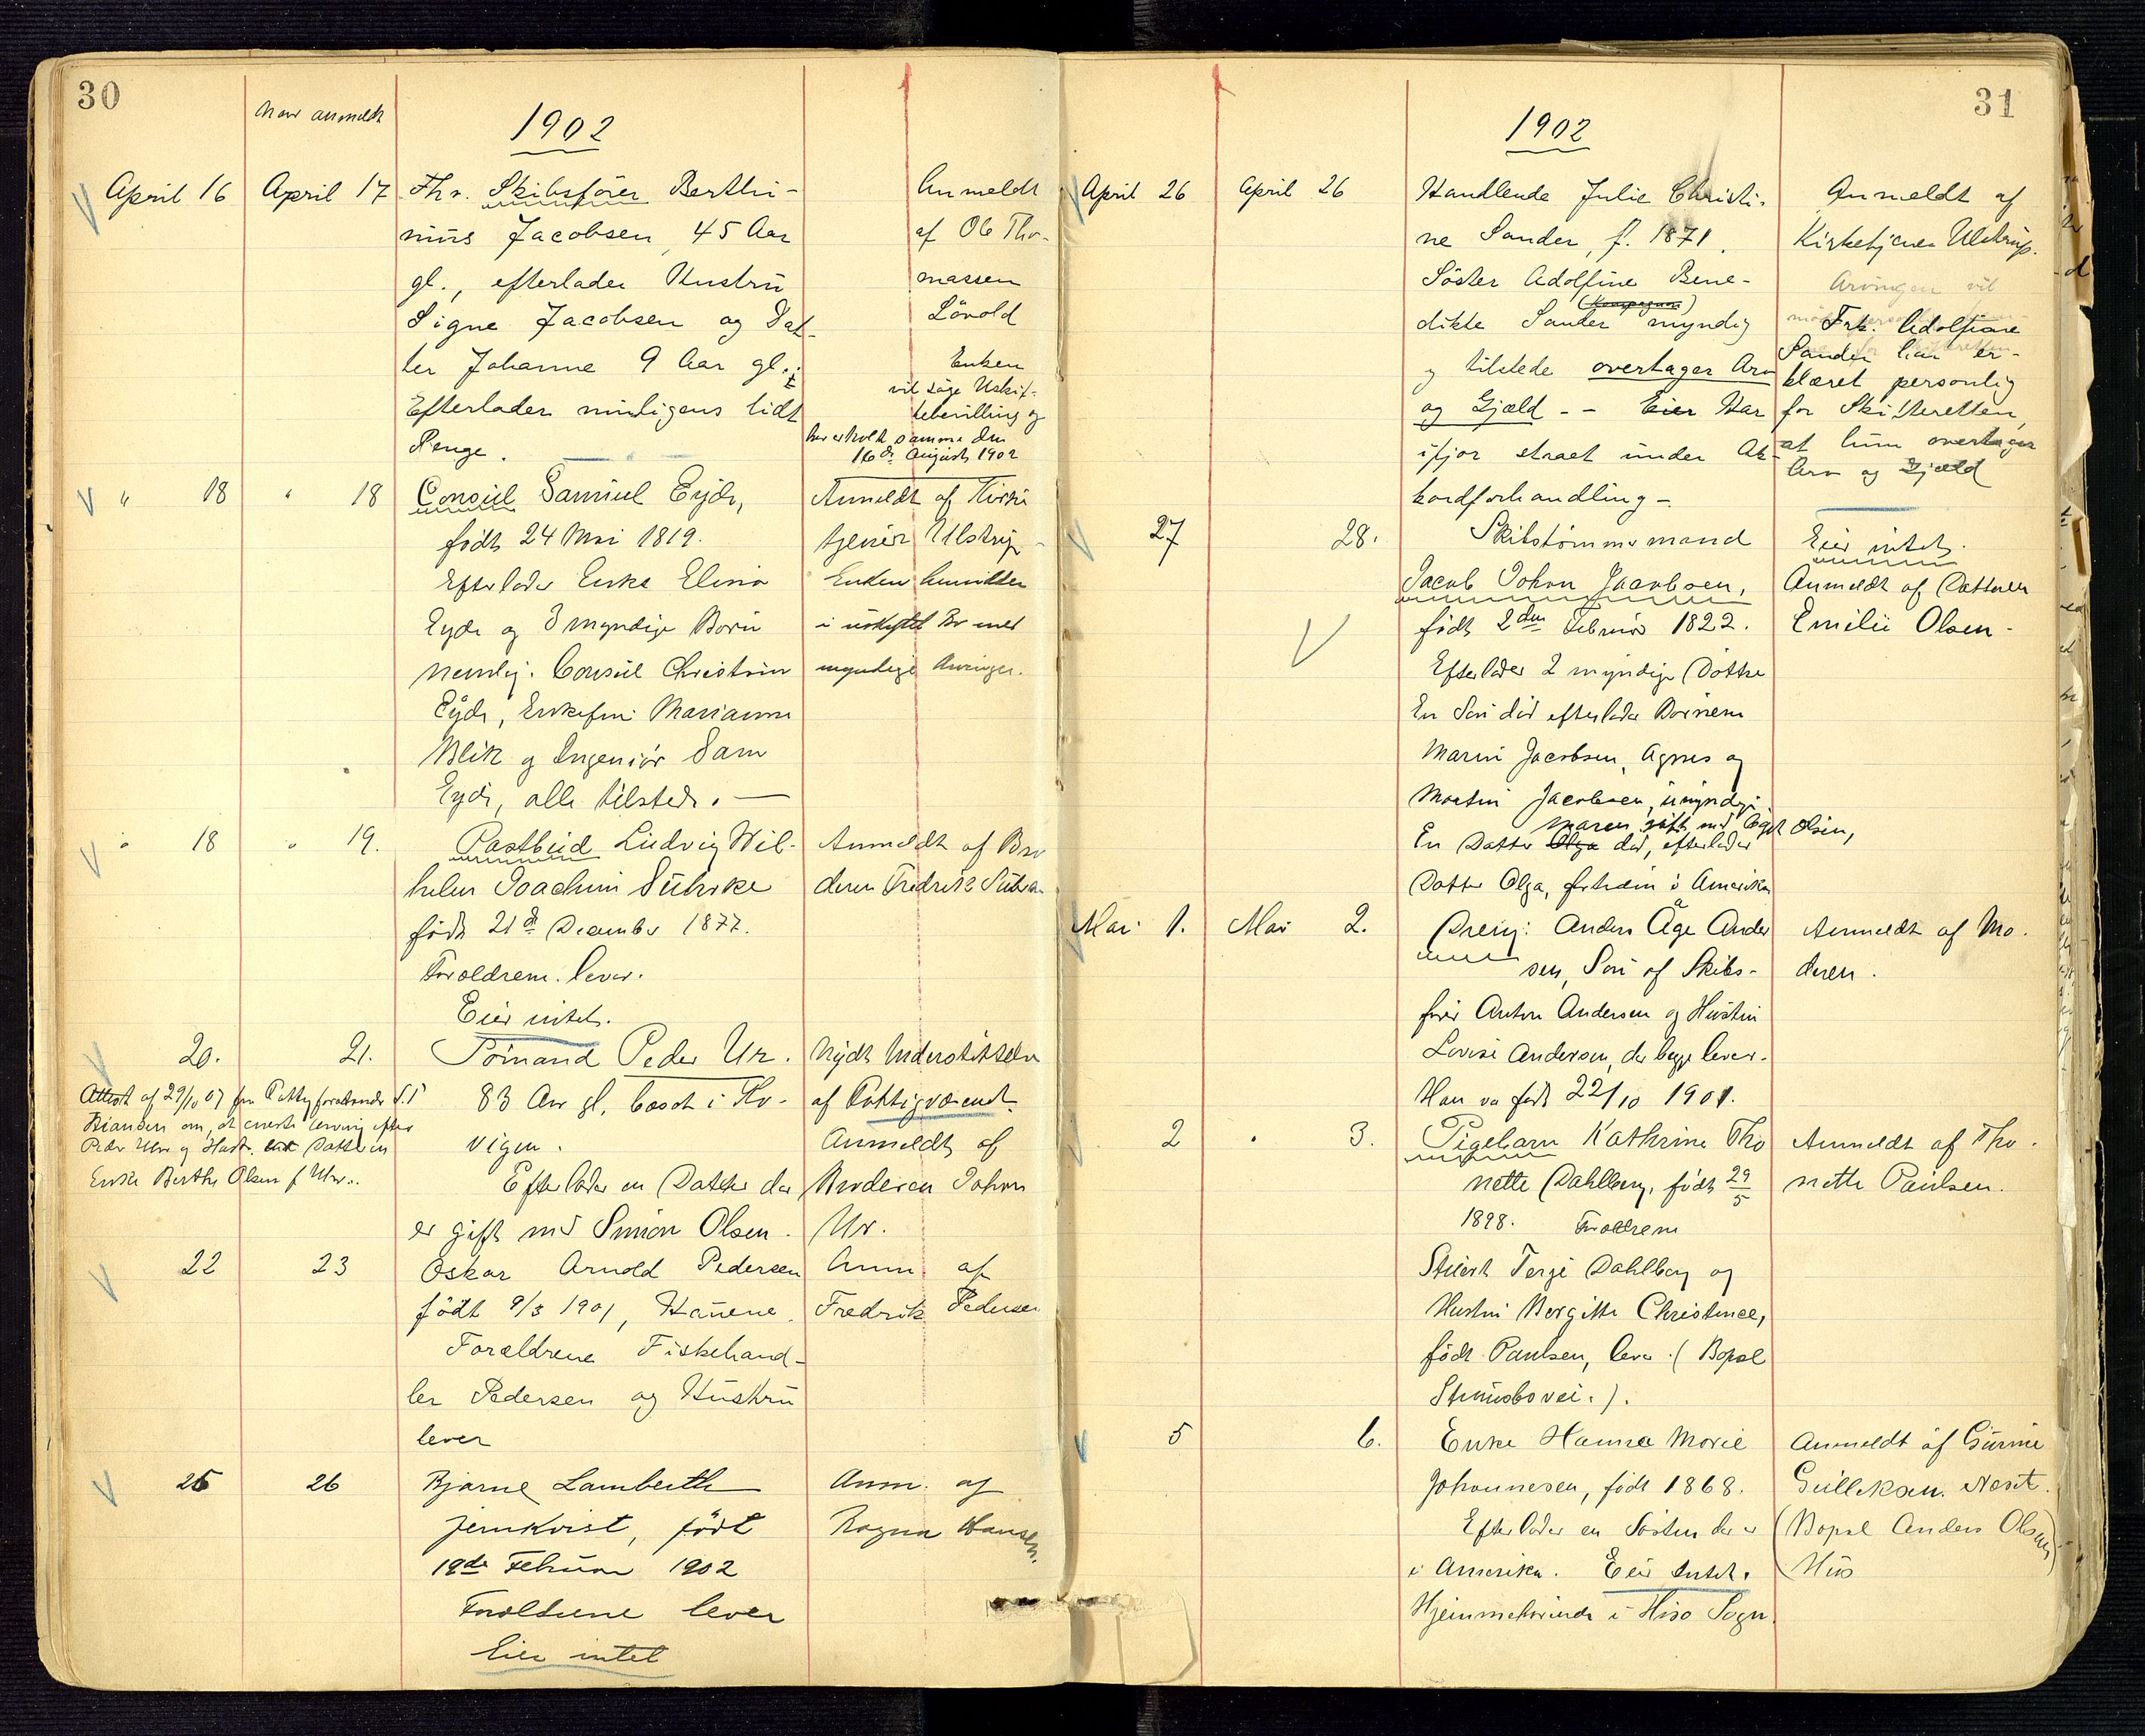 30
Naar anmeldt
1902
April 16 April 17 Fhv. Skibsfører Berthi- Anmeldt
nius Jacobsen, 45 Aar af Ole Tho-
gl., efterlader Hustru massen
Signe Jacobsen og Dat- Lövold
ter Johanne 9 Aar gl.; Enken
vil søge Uskif-
Efterlader muligens lidt tebevilling og
Penge. har erholdt samme den
16de August 1902
" 18 " 18 Consul Samuel Eyde, Anmeldt af Kirke
født 24 Mai 1819. tjener Ulstrup
Efterlader Enke Elina Enken hensidder
Eyde og 3 myndige Børn i uskiftet Bo med
nemlig: Consul Christian myndige Arvinger.
Eyde, Enkefru Marianne
Blik og Ingeniør Sam
Eyde, alle tilstede. —
" 18 " 19. Postbud Ludvig Wil- Anmeldt af Bro
helm Joachim Suhrke deren Fredrik Suhrke
født 21de December 1877.
Forældrene lever.
Eier intet.
20. 21. Sømand Peder Ur. Nydt Understøttelse
83 Aar gl, bosat i Ko- af Fattigvæsenet.
vigen. Anmeldt af
Attest af 29/10 07 fra Fattigforstander S. T
om, at eneste Arving efter
Peder Urv og Hustr. er Datteren
Enke Berthe Olsen f Urv..
Efterlader en Datter der Broderen Johan
er gift med Simon Olsen. Ur.
22 23 Oskar Arnold Pedersen Anm. af
født 9/3 1901, Fredrik Pedersen
Forældrene Fiskehand-
ler Pedersen og Hustru
lever
25 26 Bjarne Lamberth Anm. af
Jernkvist, født Ragna Hansen.
19de Februar 1902
Forældrene lever
Eier intet
31
1902
April 26 April 26 Handlende Julie Christi- Anmeldt af
ne Sander, f. 1871. Kirketjener Ulstrup.
Søster Adolfine Bene- Arvingen vil
(Kompagnon)
dikte Sander myndig Frk. Adolfine
og tilstede overtager Arv Sander har er-
klæret personlig
og Gjæld - - Eier Har for Skifteretten,
ifjor staaet under Ak- at hun overtager
Arv og Gjæld
kordforhandling -.
27 28. Skibstømmermand Eier intet.
Jacob Johan Jacobsen, Anmeldt af Datteren
født 2den Februar 1822. Emilie Olsen -
Efterlader 2 myndige Døttre
En Søn død efterlader Børnene
Marie Jacobsen, Agnes og
Martin Jacobsen, umyndige
Maren gift med Olsen,
En Datter Olga død, efterlader
Datter Olga, forhen i Amerika
Mai 1. Mai 2. Dreng: Anders Åge Ander Anmeldt af Mo-
sen, Søn af Skibs- deren.
fører Anton Andersen og Hustru
Lovise Andersen, der begge lever.
Han var født 22/10 1901.
2 " 3. Pigebarn Kathrine Tho Anmeldt af Tho-
nette Dahlberg, født 29/5 nette Paulsen.
1898. Forældrene
Stuert Terje Dahlberg og
Hustru Bergitte Christence,
født Paulsen, lever. (Bopæl
Strømsbovei.).
5 6. Enke Hanna Marie Anmeldt af Gurine
Johannesen, født 1868. Gulleksen. Næset.
Efterlader en Søster der er (Bopæl Anders Olsens)
i Amerika. Eier Intet. Hus
Hjemmehørende i Hisø Sogn.